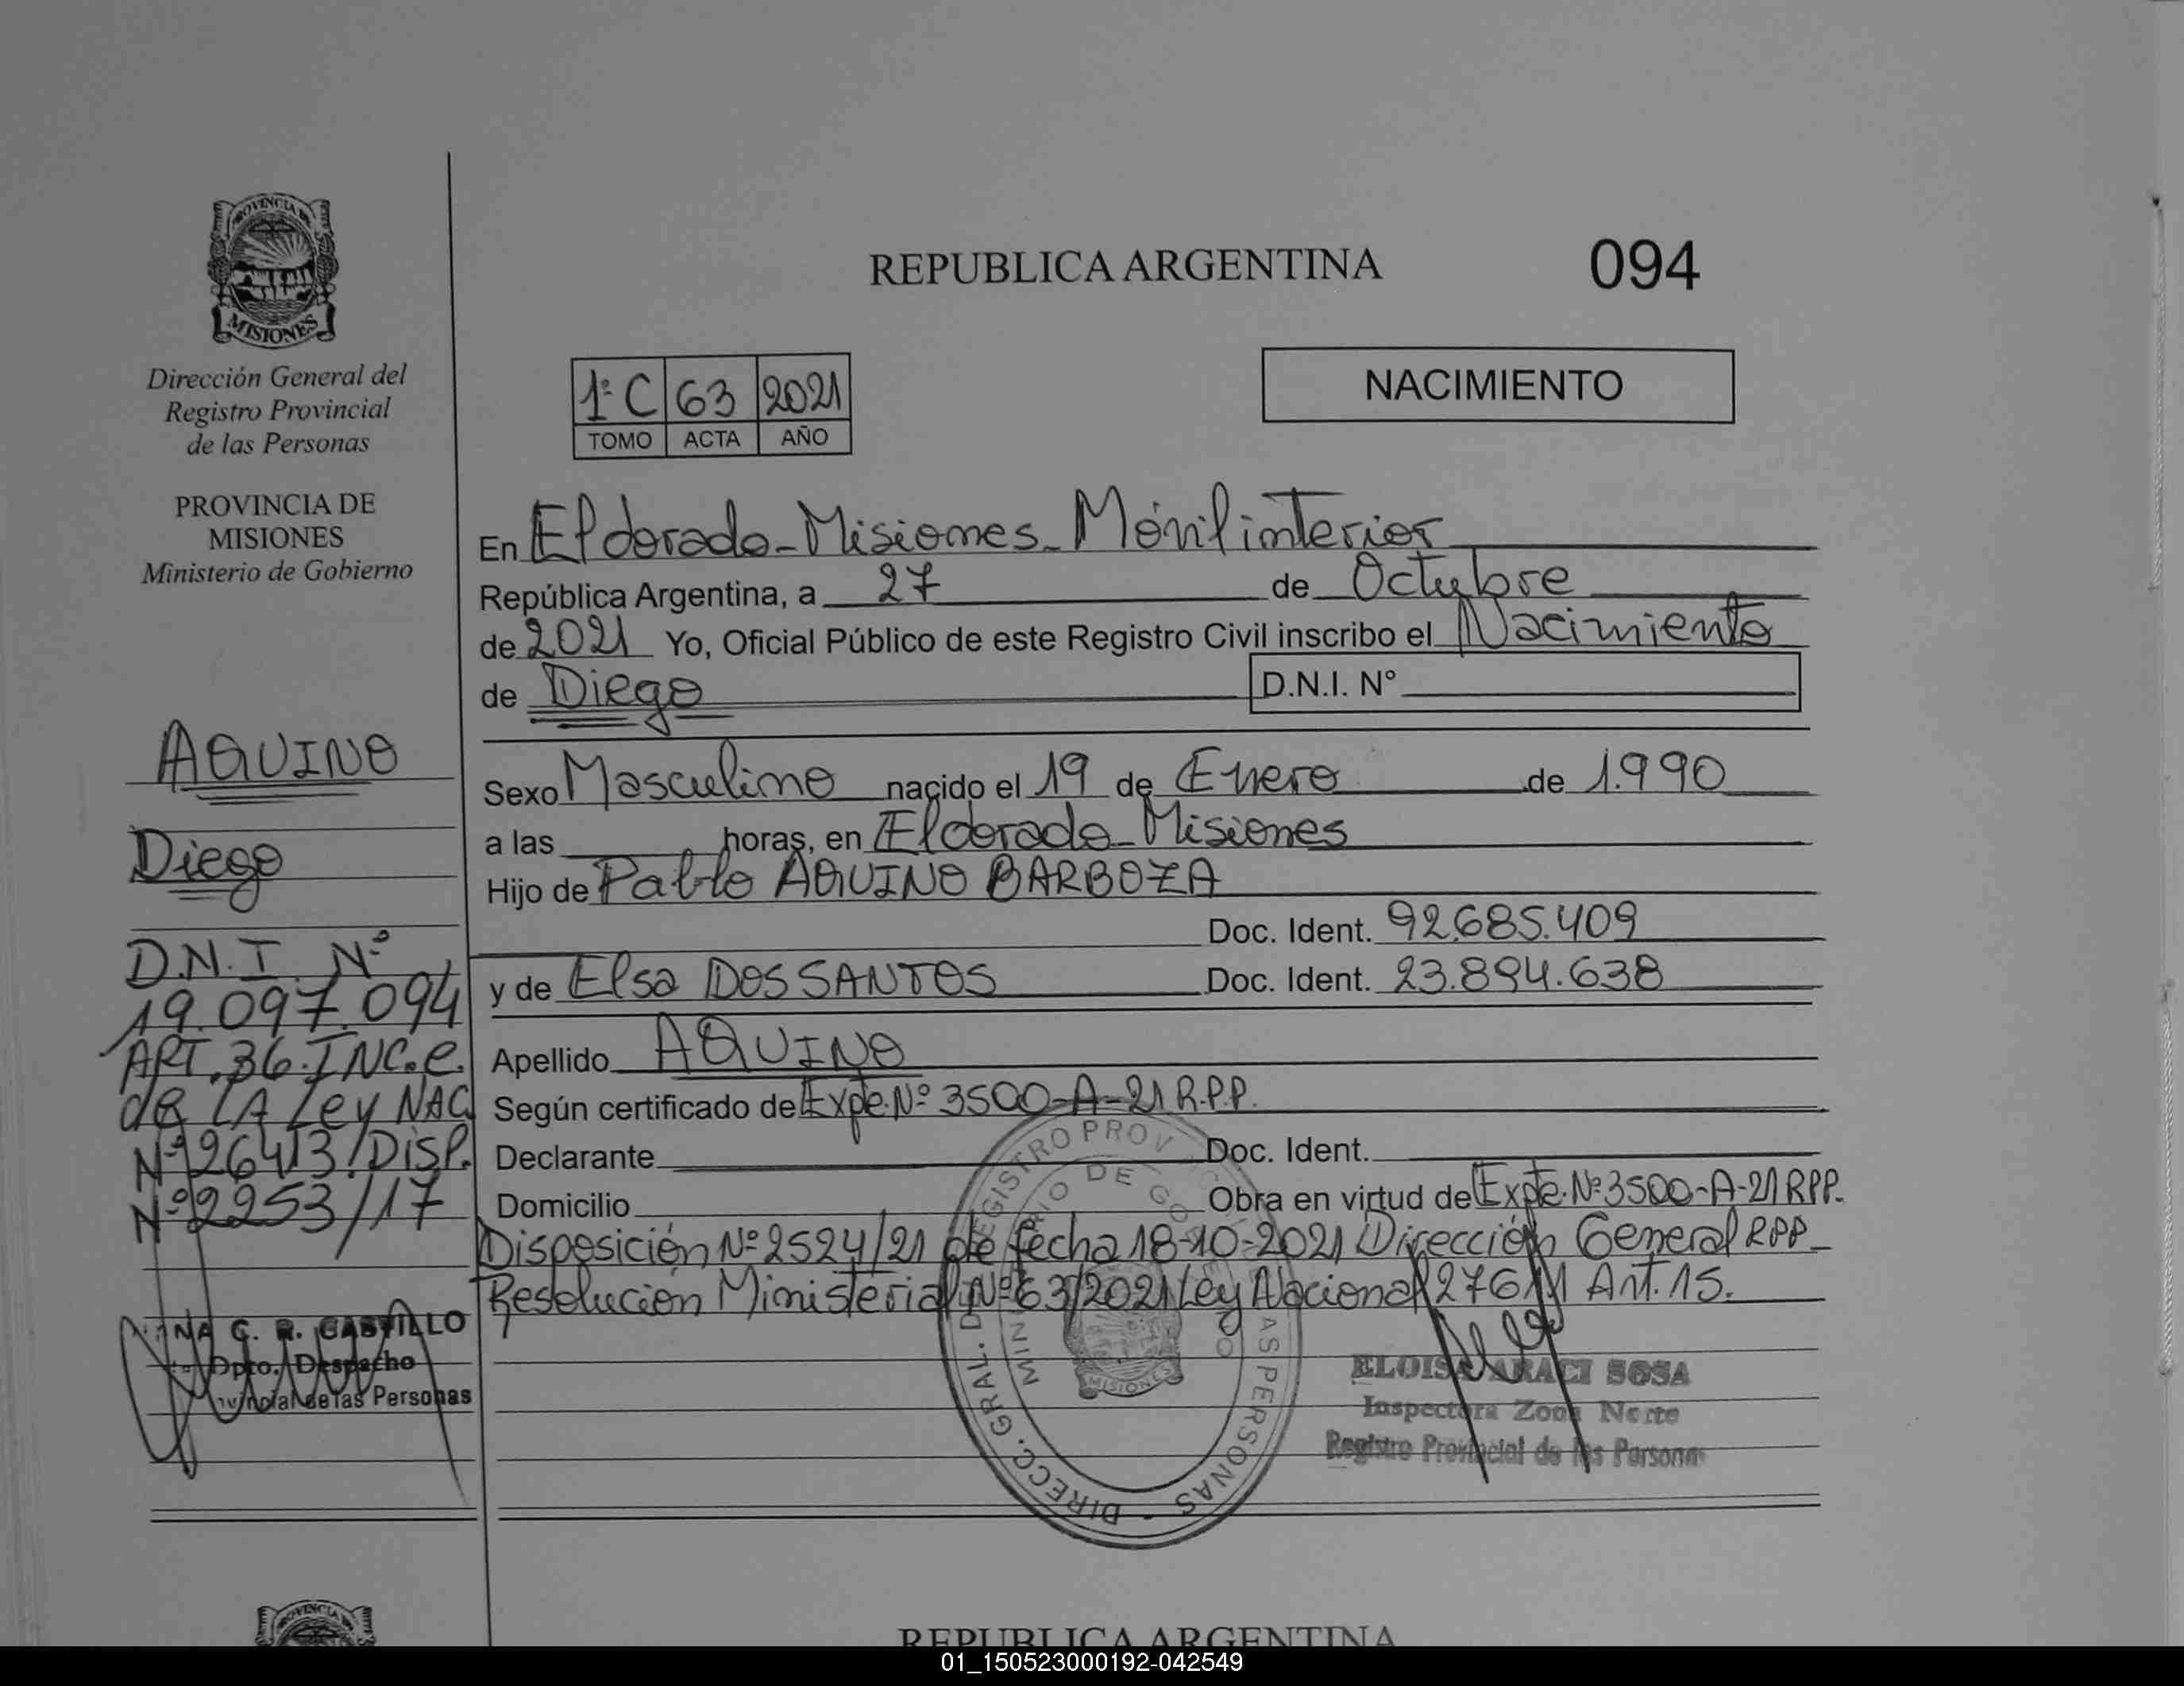 PROVINCIA DE
MISIONES
Dirección General del
Registro Provincial
de las Personas
PROVINCIA DE
MISIONES
Ministerio de Gobierno
AQUINO
Diego
D.N.I. Nº
19.097.094
ART. 36. INC. e.
de LA Ley NAC
Nº 26413/DISP.
Nº 2253/17
C. R. CASTILLO
Dpto. Despacho
de las Personas
REPUBLICA ARGENTINA
094
1º C 63 2021
TOMO ACTA AÑO
NACIMIENTO
En Eldorado - Misiones - Móvil interior
República Argentina, a 27 de Octubre
de 2021 Yo, Oficial Público de este Registro Civil inscribo el Nacimiento
de Diego D.N.I. N°
Sexo Masculino nacido el 19 de Enero de 1.990
a las horas, en Eldorado - Misiones
Hijo de Pablo AQUINO BARBOZA
Doc. Ident. 92.685.409
y de Elsa DOS SANTOS Doc. Ident. 23.894.638
Apellido AQUINO
Según certificado de Expte. Nº 3500-A-21 R.P.P.
Declarante Doc. Ident.
Domicilio Obra en virtud de Expte. Nº 3500-A-21 RPP.
Disposición Nº 2524/21 de fecha 18-10-2021 Dirección General RPP -
Resolución Ministerial Nº 63/2021 Ley Nacional 27611 Art. 15.
ELOISA ARACI SOSA
Inspectora Zona Norte
Registro Provincial de las Personas
DIRECC. GRAL. DE REGISTRO PROV AS PERSONAS
MIN RIO DE GO
MISIONES
PROVINCIA DE
REPUBLICA ARGENTINA
01_150523000192-042549